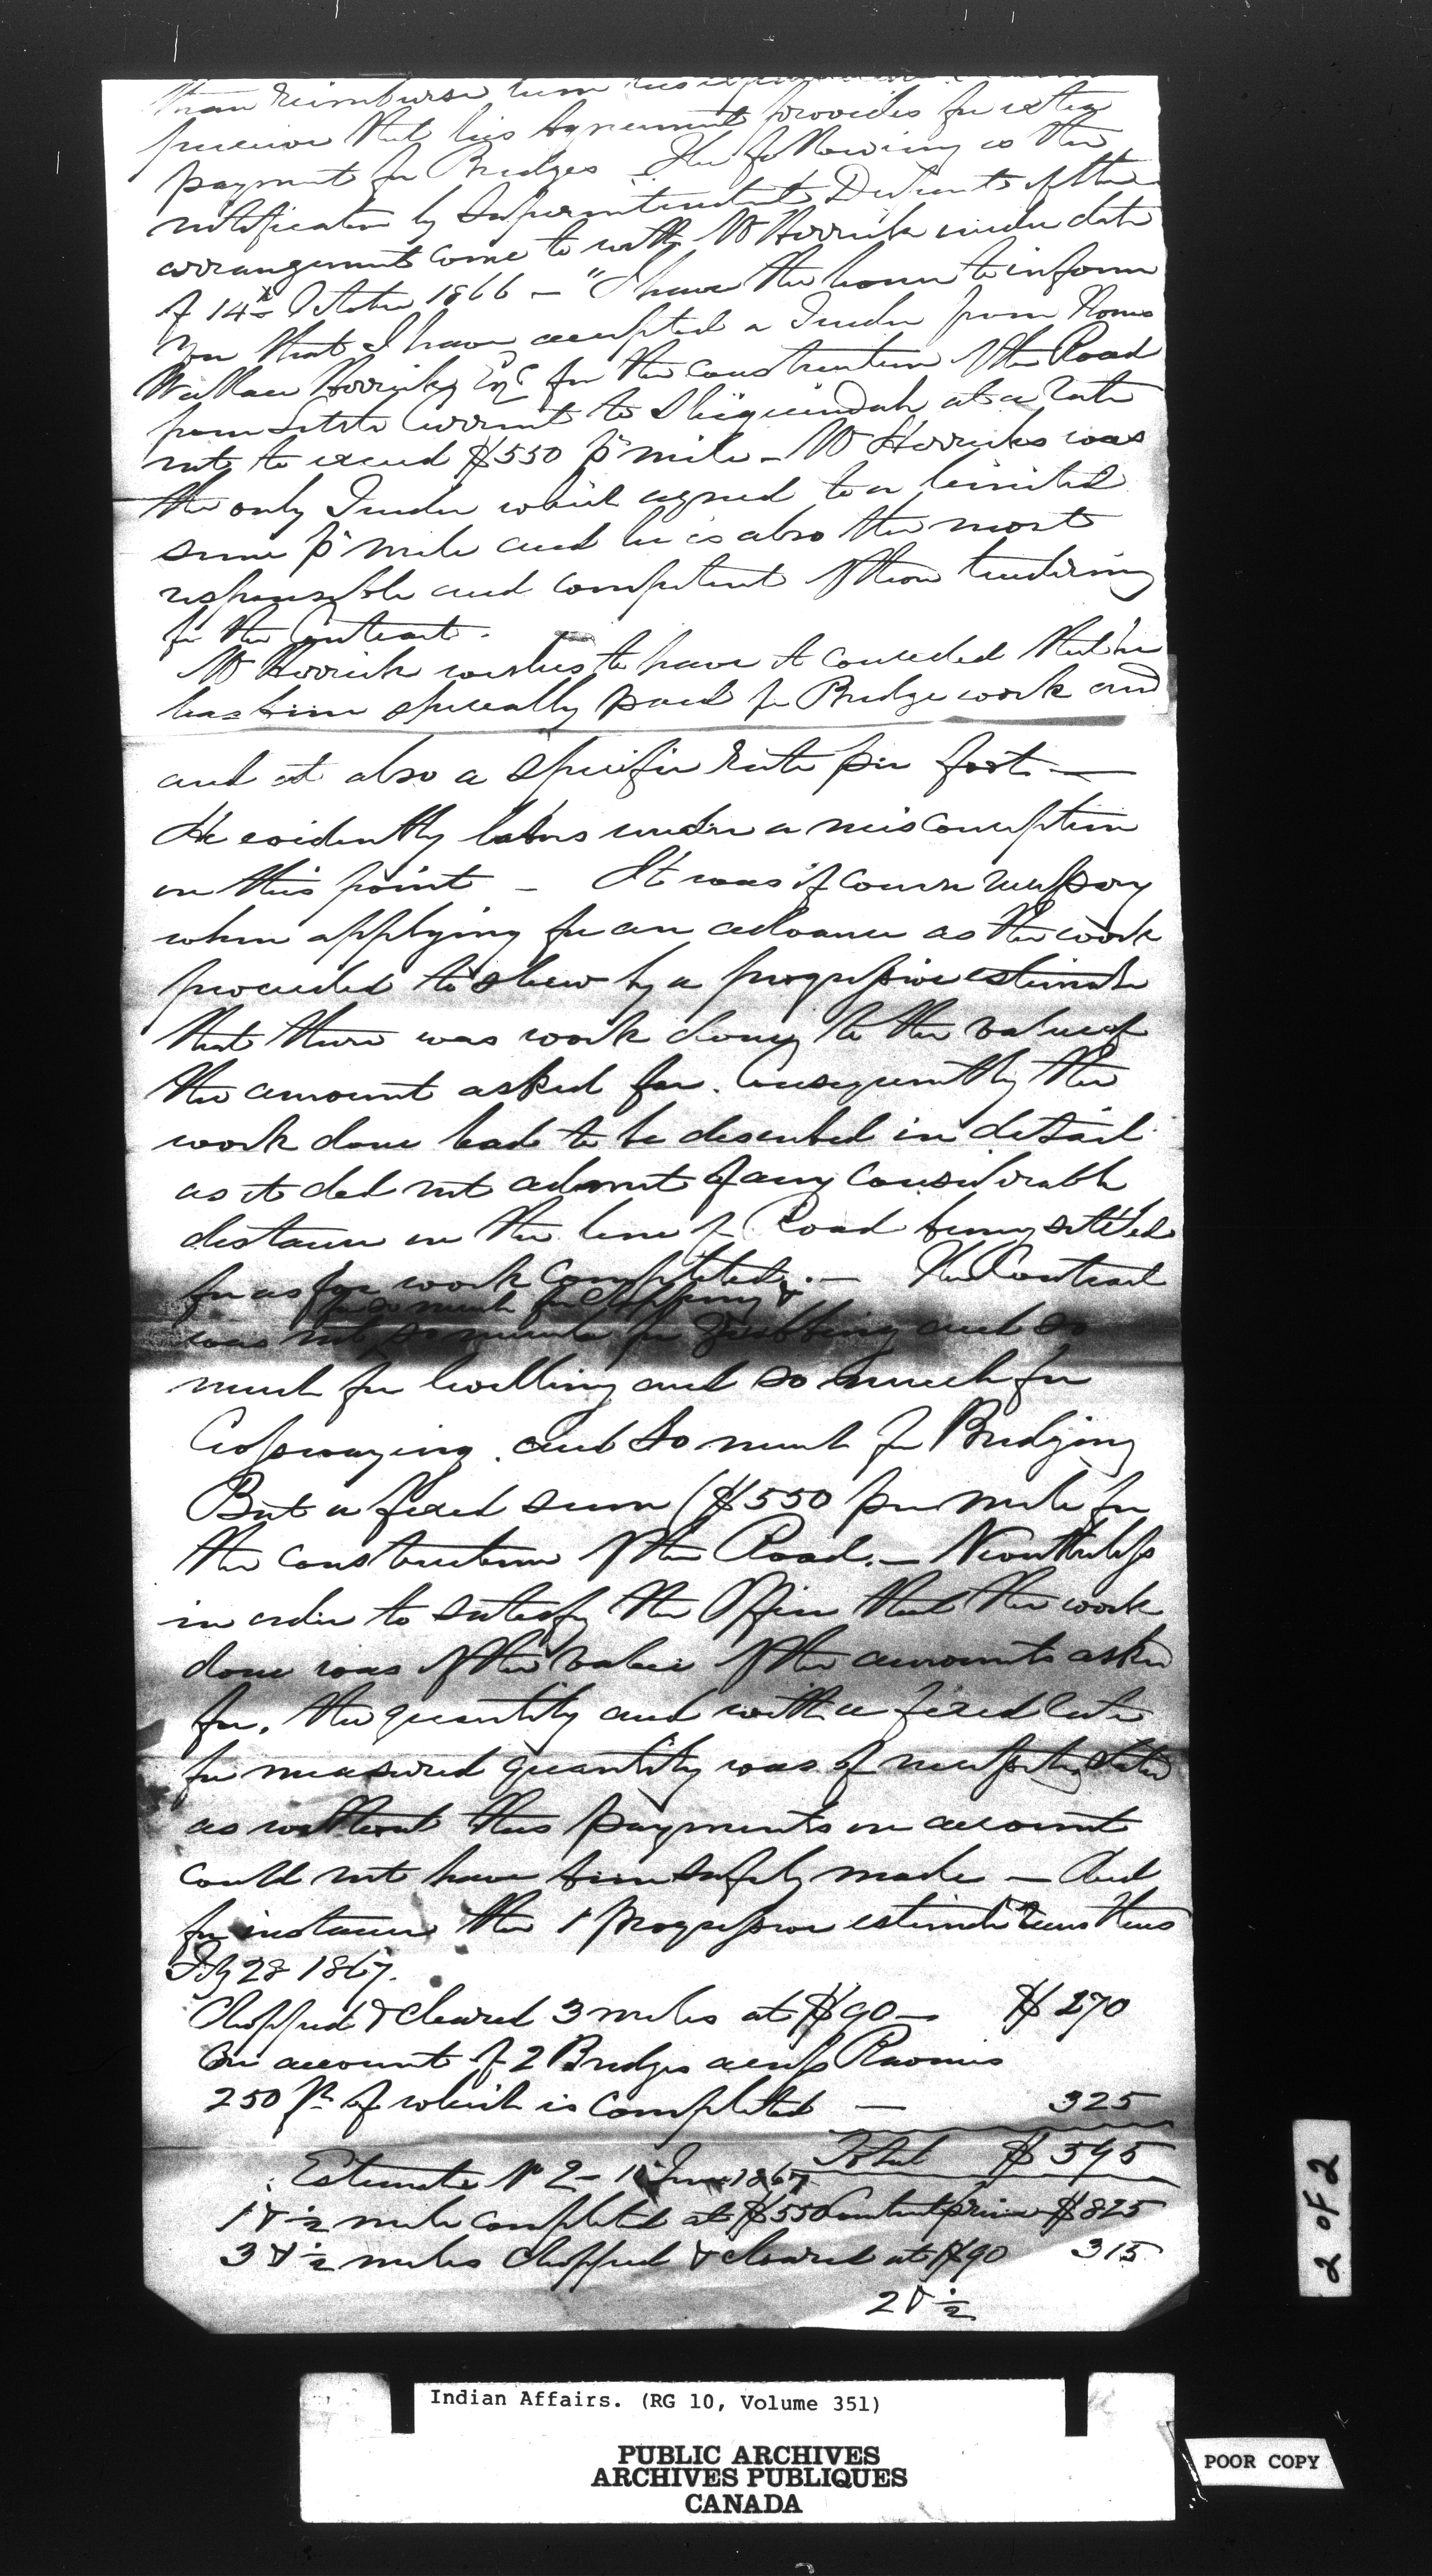 than reimburse him his
that his Agreement provides for extra
payment for Bridges. The following is the
notification by Superintendent Dupont of the
arrangement come to with Mr Herrick under date
of 14th October 1866 — "I have the honor to inform
you that I have accepted a Tender from Thomas
Wallace Herrick Esqr for the construction of the Road
from Little Current to Sheguiandah at a rate
not to exceed $550 pr mile — Mr Herricks was
the only Tender which agreed to a limited
sum pr mile and he is also the most
responsible and competent of those tendering
for the Contract.
Mr Herrick wishes to have it conceded that he
has been specially paid for Bridge work and
and at also a specific rate per foot —
He evidently labors under a misconception
on this point — It was of course necessary
when applying for an advance as the work
proceeded to shew by a progressive estimate
that there was work done to the value of
the amount asked for. Consequently the
work done had to be described in detail
as it did not admit of any considerable
distance on the line of Road being settled
for as for work completed. — The Contract
for so much for chopping &
was not so much for grubbing and so
much for levelling and so much for
Crossswaying and so much for Bridging
But a fixed sum ($550 per mile for
the construction of the Road. — Nevertheless
in order to satisfy the Office that the work
done was of the value of the amounts asked
for, the quantity and with a fixed rate
for measured quantity was of necessity stated
as without this payments on account
could not have been safely made — And
for instance the 1 progressive estimate runs thus
Feby 28 1867.
Chopped & cleared 3 miles at $90 — $270
On account of 2 Bridges across Ravines
250 ft of which is completed — 325
Total $595
Estimate No 2 — June 1867
1 & ½ mile completed at $550 Contract price $825
3 & ½ miles chopped & cleared at $90 315
2 & ½
2 of 2
Indian Affairs. (RG 10, Volume 351)
PUBLIC ARCHIVES
ARCHIVES PUBLIQUES
CANADA
POOR COPY